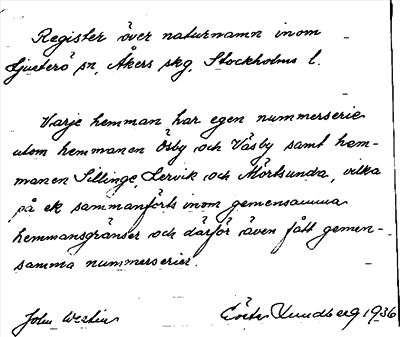 Register över naturnamn inom
Ljusterö sn, Åkers skg, Stockholms l.
Varje hemman har egen nummerserie
utom hemmanen Ösby och Väsby samt hem-
manen Sillinge, Lervik och Mörtsunda, vilka
på ek sammanförts inom gemensamma
hemmansgränser och därför även fått gemen-
samma nummerserier.
John Westin
Gösta Lundberg 1936